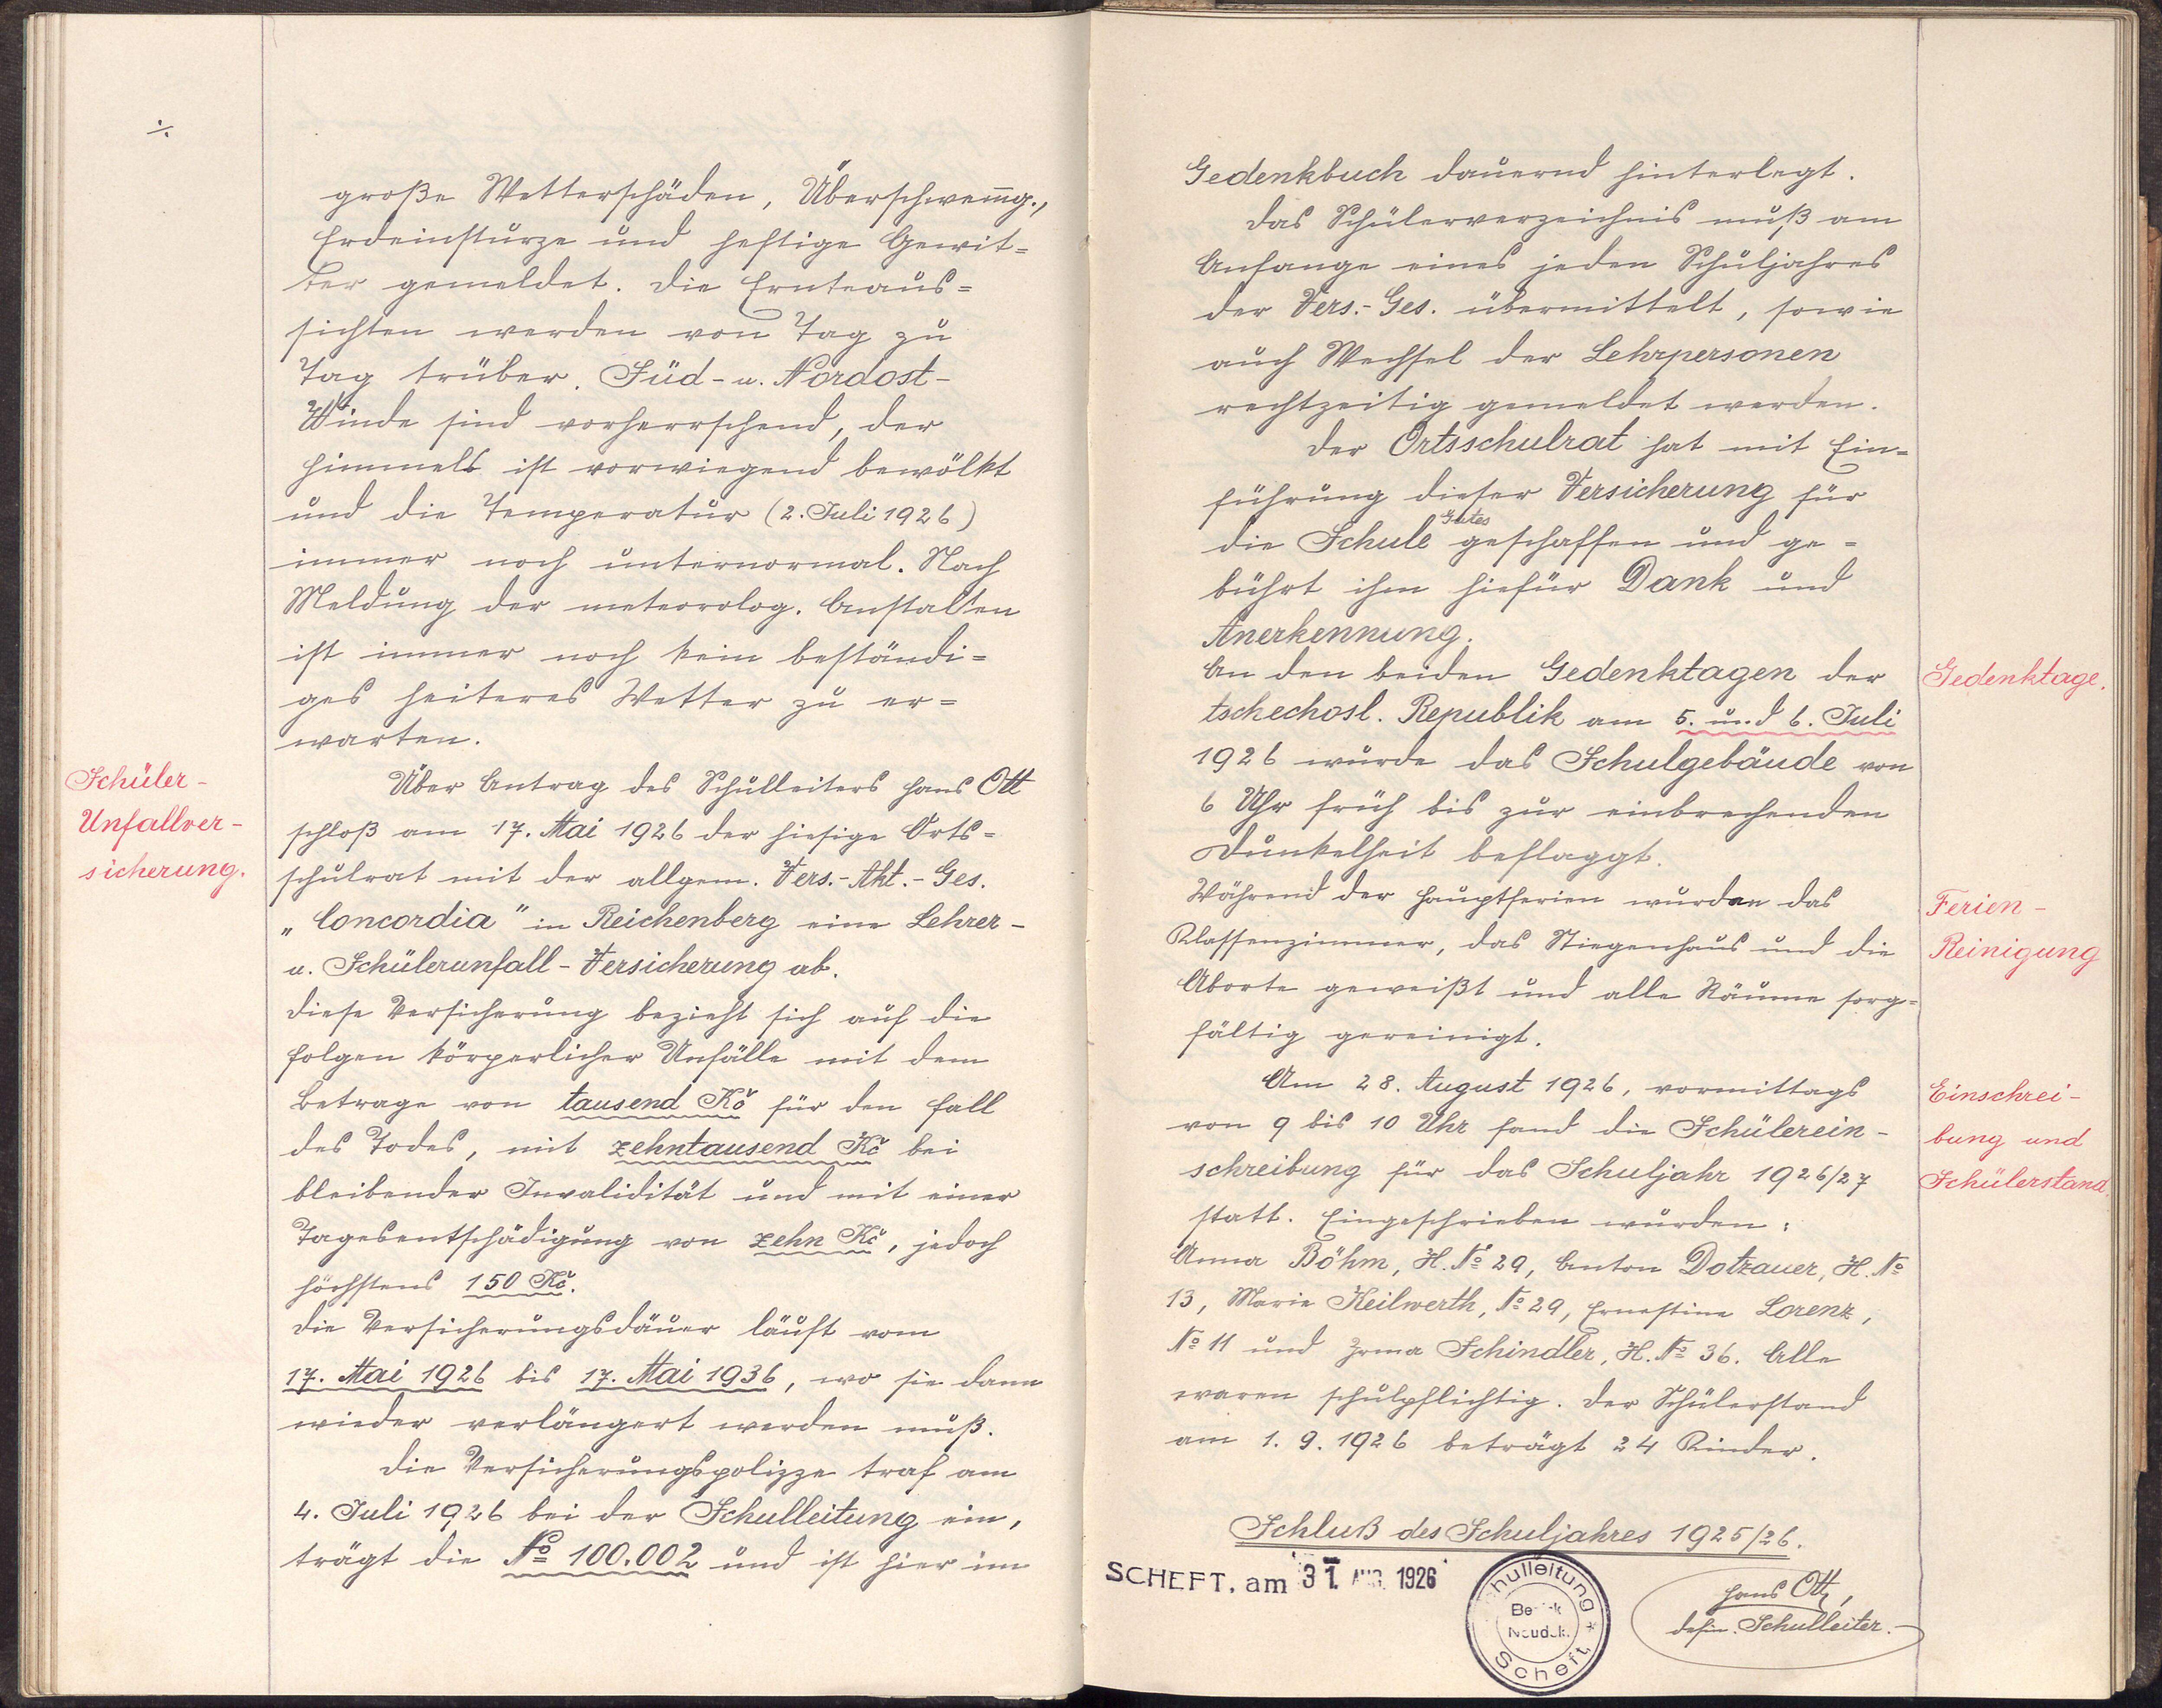 ÷
große Wetterschäden, Überschwemg.,
Erdeinstürze und heftige Gewit=
ter gemeldet. Die Ernteaus=
sichten werden von Tag zu
Tag trüber. Süd- u. Nordost-
Winde sind vorherrschend, der
Himmels ist vorwiegend bewölkt
und die Temperatur (2. Juli 1926)
immer noch unternormal. Nach
Meldung der meteorolog. Anstalten
ist immer noch kein beständi=
ges heiteres Wetter zu er=
warten.
Schüler-
Unfallver-
sicherung.
Über Antrag des Schulleiters Hans Ott
schloß am 17. Mai 1926 der hiesige Orts=
schulrat mit der allgem. Vers.-Akt.-Ges.
„Concordia" in Reichenberg eine Lehrer-
u. Schülerunfall-Versicherung ab.
Diese Versicherung bezieht sich auf die
Folgen körperlicher Unfälle mit dem
Betrage von tausend Kč für den Fall
des Todes, mit zehntausend Kč bei
bleibender Invalidität und mit einer
Tagesentschädigung von zehn Kč, jedoch
höchstens 150 Kč.
Die Versicherungsdauer läuft vom
17. Mai 1926 bis 17. Mai 1936, wo sie dann
wieder verlängert werden muß.
Die Versicherungspolizze traf am
4. Juli 1926 bei der Schulleitung ein,
trägt die No 100.002 und ist hier im
Gedenkbuch dauernd hinterlegt.
Das Schülerverzeichnis muß am
Anfange eines jeden Schuljahres
der Vers.-Ges. übermittelt, sowie
auch Wechsel der Lehrpersonen
rechtzeitig gemeldet werden.
Der Ortsschulrat hat mit Ein=
führung dieser Versicherung für
die Schule Gutes geschaffen und ge=
bührt ihm hiefür Dank und
Anerkennung.
An den beiden Gedenktagen der
Gedenktage.
tschechosl. Republik am 5. und 6. Juli
1926 wurde das Schulgebäude von
6 Uhr früh bis zur einbrechenden
Dunkelheit beflaggt.
Während der Hauptferien wurden das
Ferien-
Klassenzimmer, das Stiegenhaus und die
Reinigung
Aborte geweißt und alle Räume sorg=
fältig gereinigt.
Am 28. August 1926, vormittags
Einschrei-
von 9 bis 10 Uhr fand die Schülerein-
bung und
schreibung für das Schuljahr 1926/27
Schülerstand.
statt. Eingeschrieben wurden:
Anna Böhm, H. No 29, Anton Dotzauer, H. No
13, Marie Keilwerth, No 29, Ernestine Lorenz,
No 11 und Irma Schindler, H. No 36. Alle
waren schulpflichtig. Der Schülerstand
am 1. 9. 1926 beträgt 24 Kinder.
Schluß des Schuljahres 1925/26.
SCHEFT, am 31. AUG. 1926
Schulleitung
Bezirk
Neudek
* Scheft *
Hans Ott,
defin. Schulleiter.